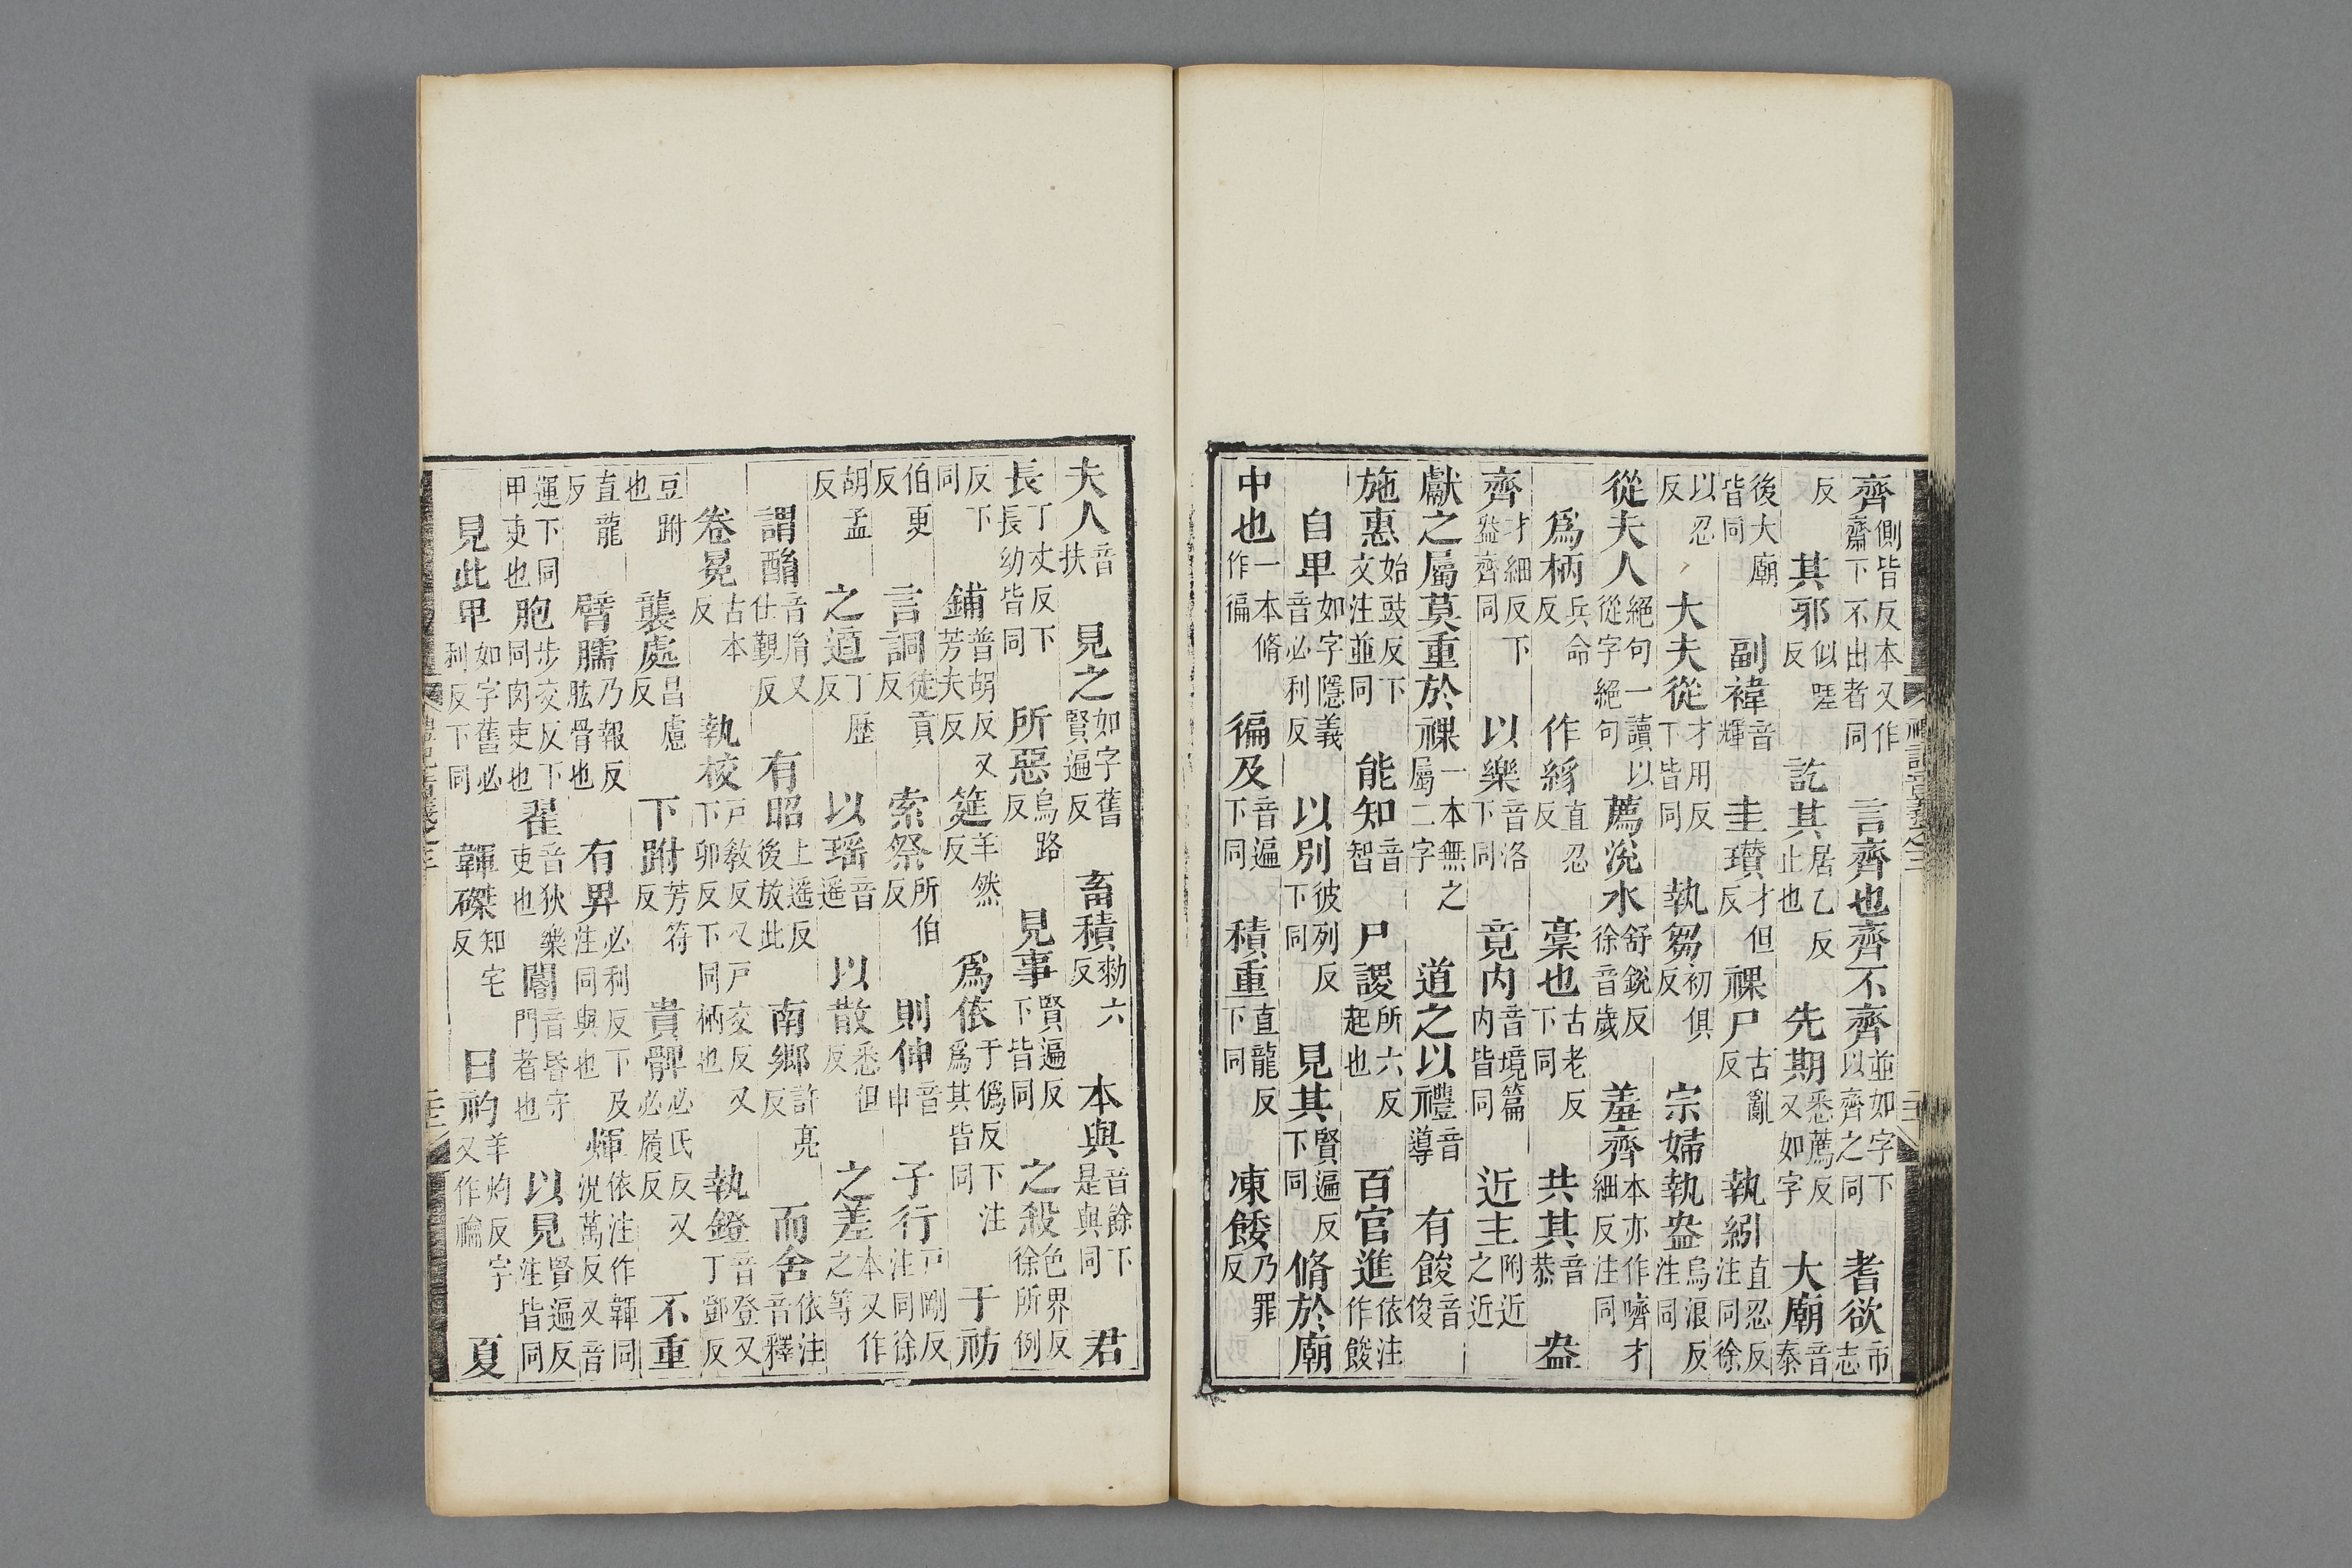 齊側皆反本又作齋下不出者同 言齊也齊不齊並如字下以齊之同 耆欲市志
反 其邪似嗟反 訖其居乙反止也 先期悉薦反又如字 大廟音泰
後大廟皆同 副褘音輝 圭瓚才但反 祼尸古亂反 執紖直忍反注同徐
以忍反 大夫從才用反下皆同 執芻初俱反 宗婦執盎烏浪反注同
從夫人絕句一讀以從字絕句 薦涗水舒銳反徐音歲 羞齊本亦作嚌才細反注同
為柄兵命反 作紖直忍反 藁也古老反下同 共其音恭 盎
齊才細反下盎齊同 以樂音洛下同 竟内音境篇内皆同 近主附近之近
獻之屬莫重於祼一本無之屬二字 道之以禮音導 有餕音俊
施惠始豉反下文注並同 能知音智 尸謖所六反起也 百官進依注作餕
自卑如字隱義音必利反 以別彼列反下同 見其賢遍反下同 脩於廟
中也一本脩作徧 徧及音遍下同 積重直龍反下同 凍餒乃罪反
夫人音扶 見之如字舊賢遍反 畜積勑六反 本與音餘下是與同 君
長丁丈反下長幼皆同 所惡烏路反 見事賢遍反下皆同 之殺色界反徐所例
反下同 鋪普胡反又芳夫反 筵羊然反 為依于偽反下注為其皆同 于祊
伯更反 言詷徒貢反 索祭所伯反 則伸音申 子行戶剛反注同徐
胡孟反 之道丁歷反 以瑤音遥 以散悉但反 之差本又作之等
謂酳音胤又仕覲反 有昭上遥反後放此 南鄉許亮反 而舍依注音釋
卷冕古本反 執校戶教反又戶交反又下卯反下同柄也 執鐙音登又丁鄧反
豆跗也 襲處昌慮反 下跗芳符反 貴髀必氏反又必履反 不重
直龍反 臂臑乃報反肱骨也 有畀必利反下及注同與也 煇依注作韗同況萬反又音
運下同甲吏也 胞步交反下同肉吏也 翟音狄樂吏也 閽音昏守門者也 以見賢遍反注皆同
見此卑如字舊必利反下同 韗磔知宅反 曰礿羊灼反字又作禴 夏